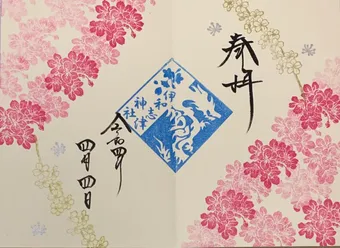 奉拝
伊和志津神社
令和四年
四月四日